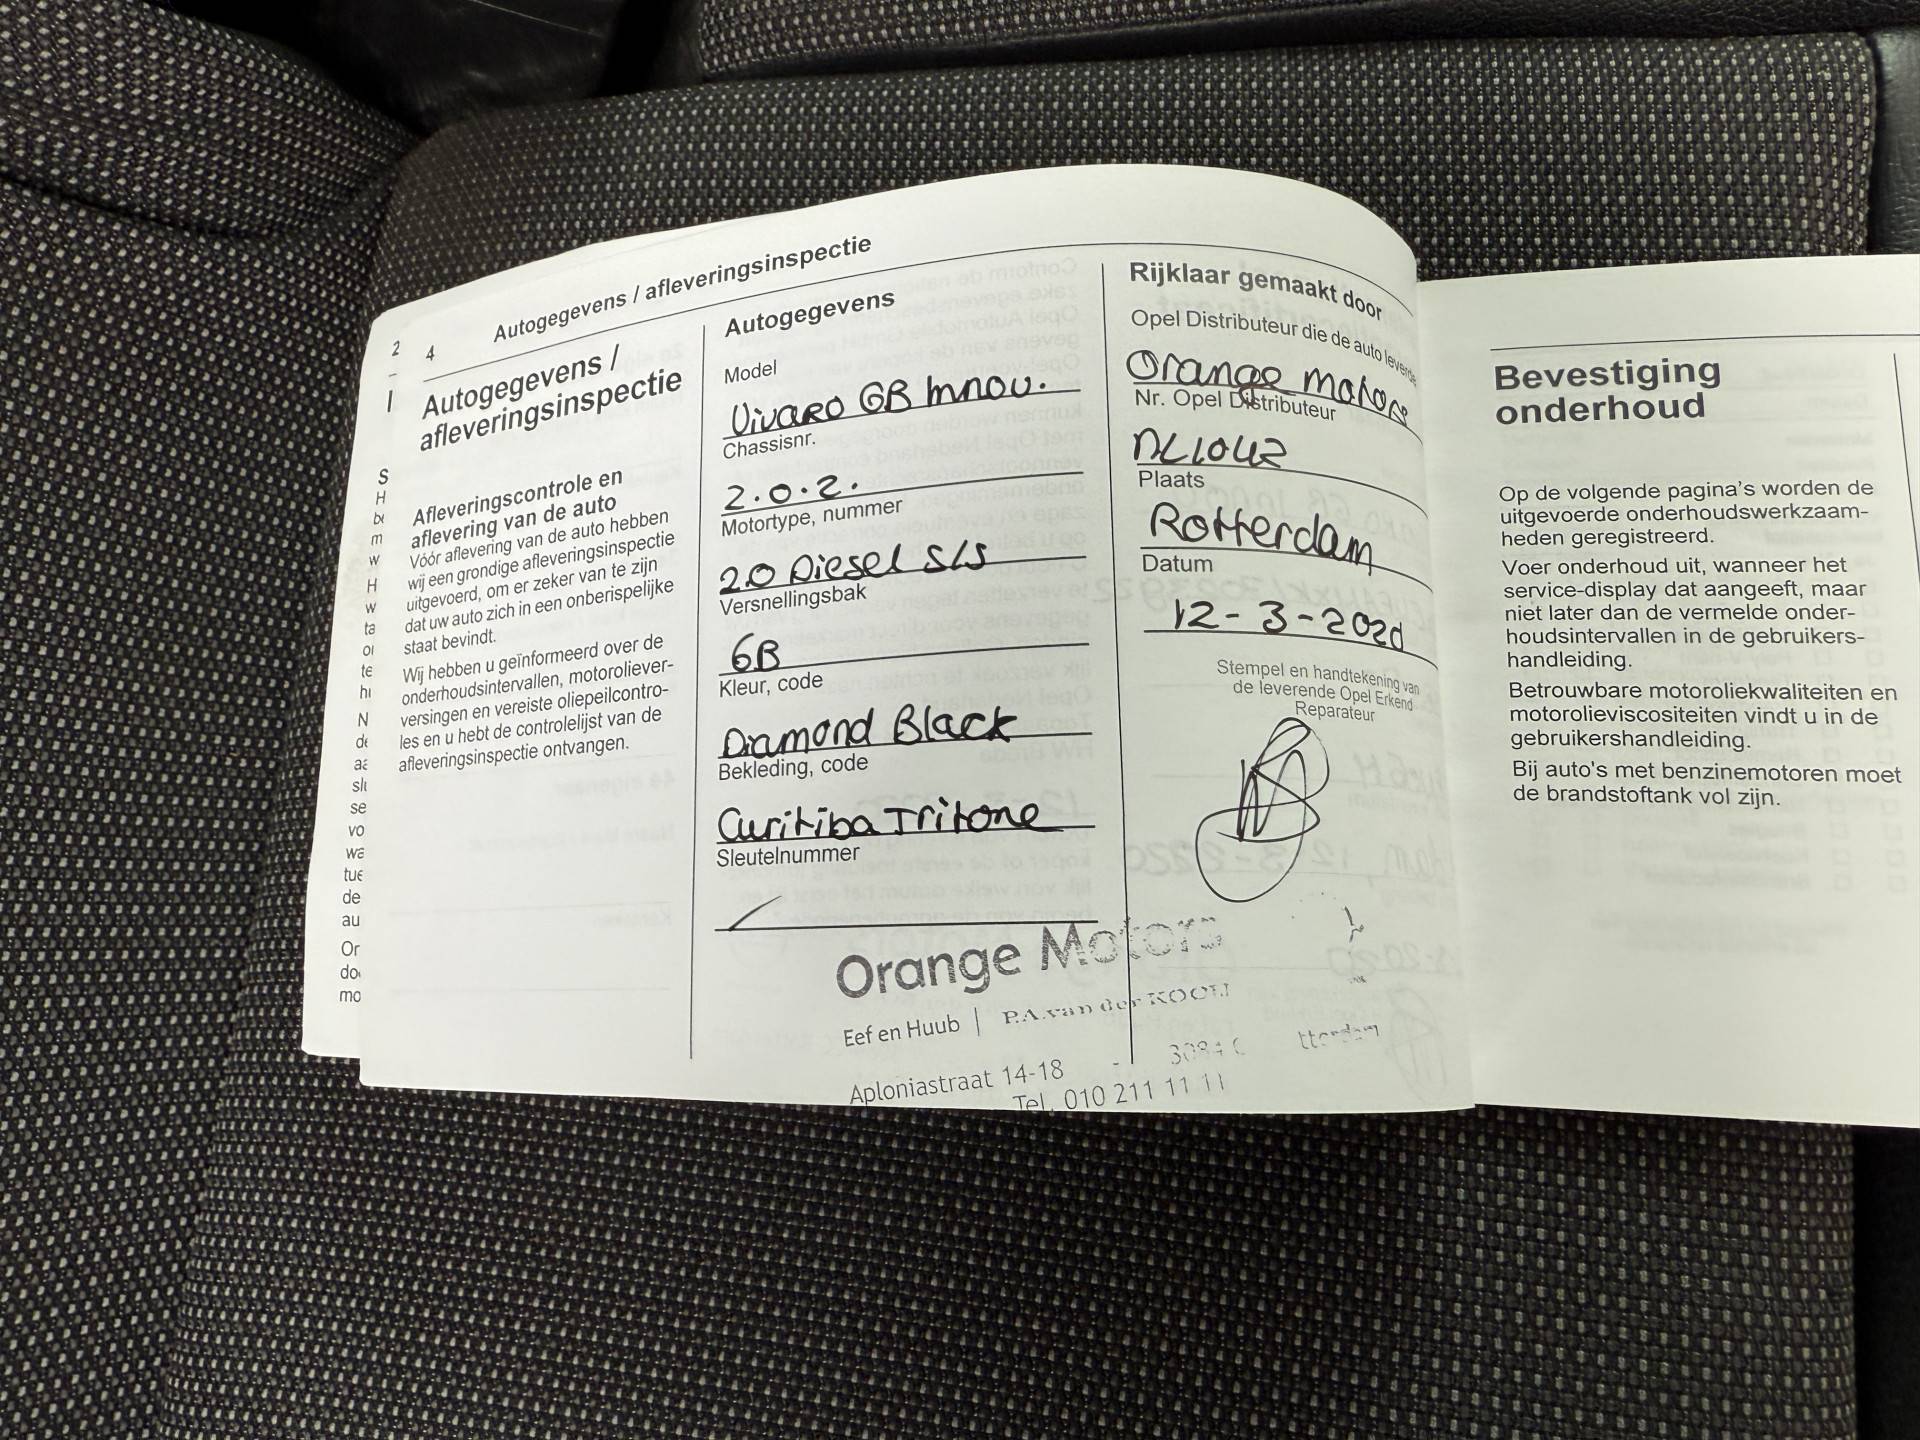 2
4
Autogegevens / afleveringsinspectie
I
S
H
m
w
H
w
ta
te
N
slu
se
vo
wa
tue
de
au
Or
do
mo
Autogegevens /
afleveringsinspectie
Afleveringscontrole en
aflevering van de auto
Vóór aflevering van de auto hebben
wij een grondige afleveringsinspectie
uitgevoerd, om er zeker van te zijn
dat uw auto zich in een onberispelijke
staat bevindt.
Wij hebben u geïnformeerd over de
onderhoudsintervallen, motoroliever-
versingen en vereiste oliepeilcontro-
les en u hebt de controlelijst van de
afleveringsinspectie ontvangen.
Autogegevens
Model
Vivaro GB Innov.
Chassisnr.
2.0.2.
Motortype, nummer
2.0 Diesel S/S
Versnellingsbak
6B
Kleur, code
Diamond Black
Bekleding, code
Curitiba Tritone
Sleutelnummer
Rijklaar gemaakt door
Opel Distributeur die de auto leverde
Orange Motors
Nr. Opel Distributeur
NL1042
Plaats
Rotterdam
Datum
12-3-2020
Stempel en handtekening van
de leverende Opel Erkend
Reparateur
Orange Motors
Eef en Huub | P.A. van der KOOIJ
Aploniastraat 14-18 - 3084
Tel. 010 211 11 11
Bevestiging
onderhoud
Op de volgende pagina's worden de
uitgevoerde onderhoudswerkzaam-
heden geregistreerd.
Voer onderhoud uit, wanneer het
service-display dat aangeeft, maar
niet later dan de vermelde onder-
houdsintervallen in de gebruikers-
handleiding.
Betrouwbare motoroliekwaliteiten en
motorolieviscositeiten vindt u in de
gebruikershandleiding.
Bij auto's met benzinemotoren moet
de brandstoftank vol zijn.